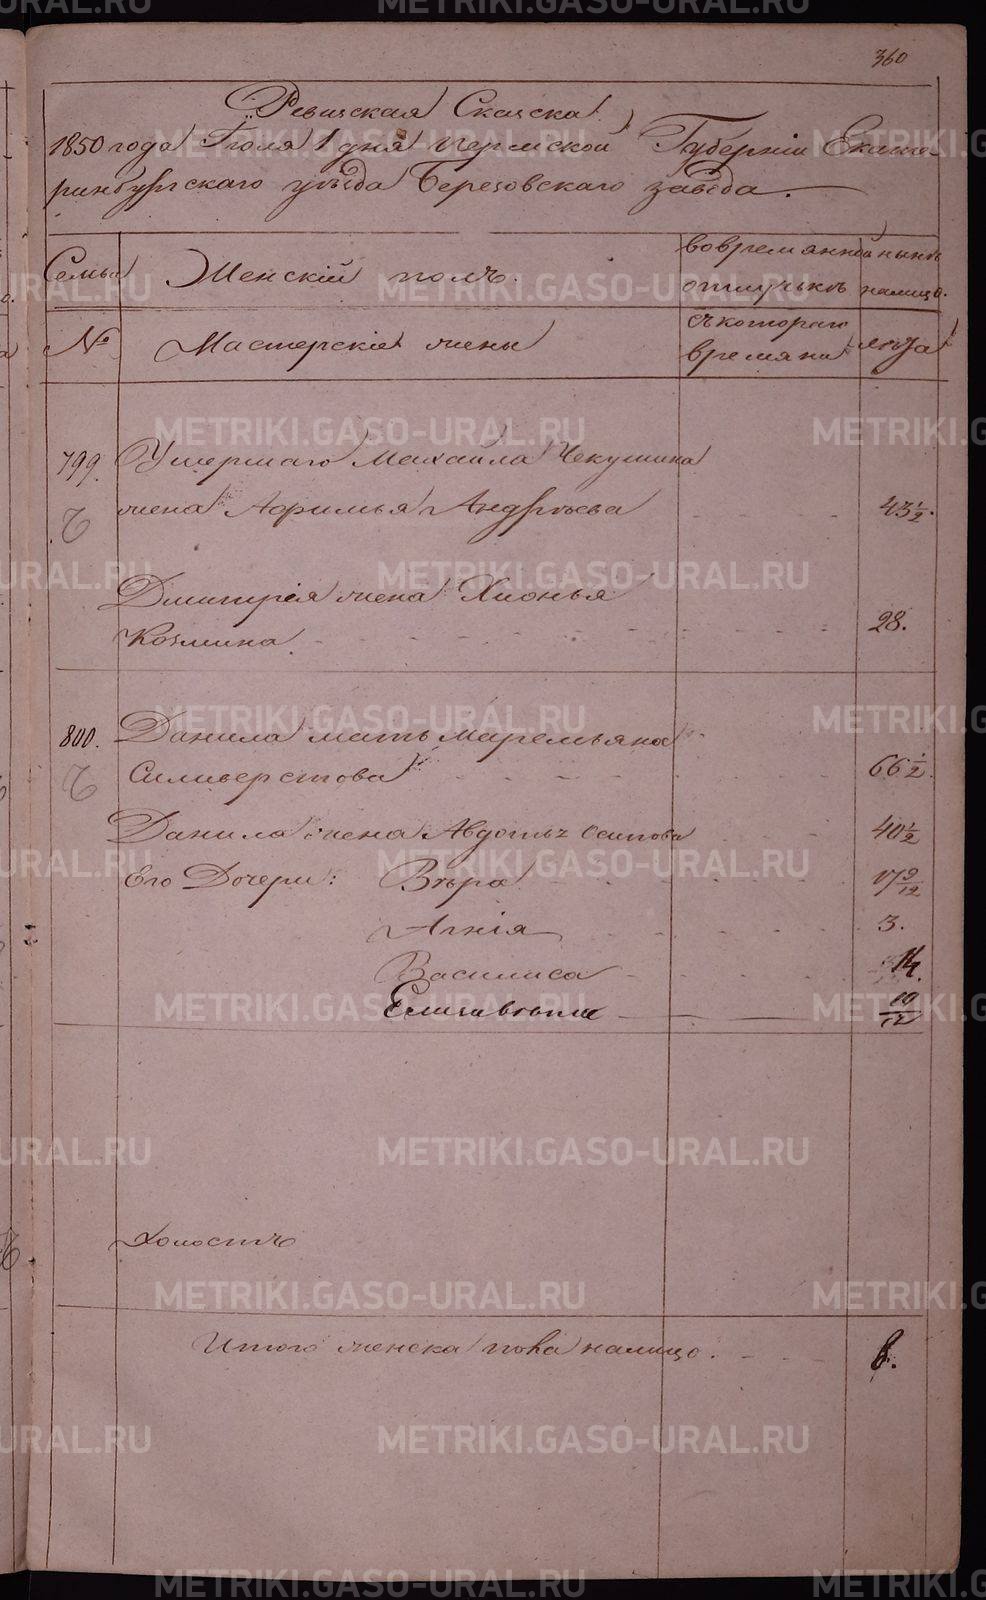 360
Ревижская Скаска
1850 года Іюля 1 дня Пермской Губерніи Екате-
ринбургскаго уѣзда Березовскаго завода.
Семьи
Женскій полъ.
вовремянной
отлучькѣ
нынѣ
налицо.
№
Мастерскіе жены
съкотораго
времяни
лѣта
799.
Умершаго Михайла Чекушина
жена Афимья Андрѣева 43 1/2.
Дмитрія жена Хионья
Козмина. 28.
800.
Данила мать Маремьяна
Силиверстова 66 1/2.
Данила жена Авдотья Осипова 40 1/2
Его Дочери: Вѣра 17 9/12
Агнія 3.
Василиса 14.
Елизавѣта 10/12
Холостъ
Итого женска пола налицо. 8.
METRIKI.GASO-URAL.RU